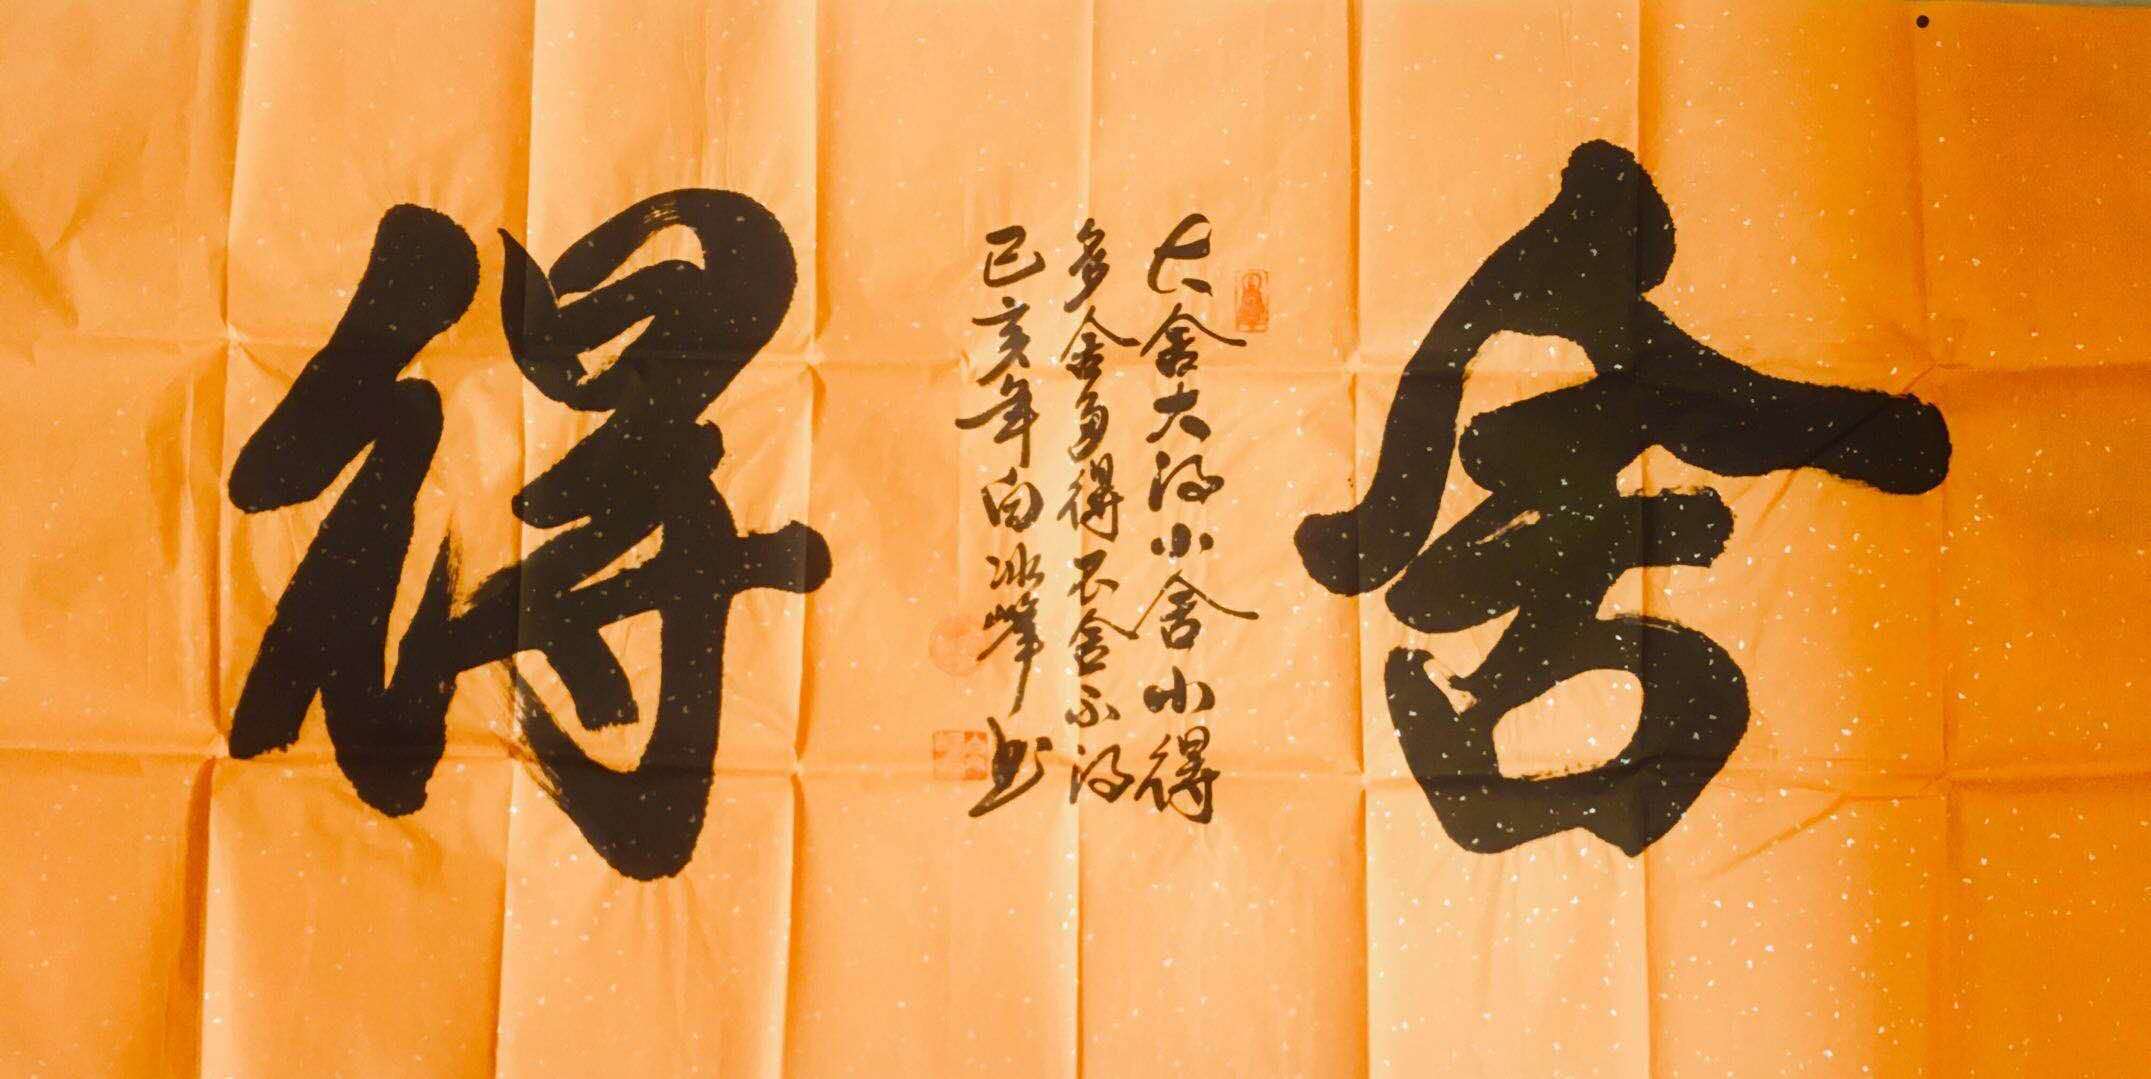 舍
大舍大得小舍小得
多舍多得不舍不得
己亥年白冰峰书
得